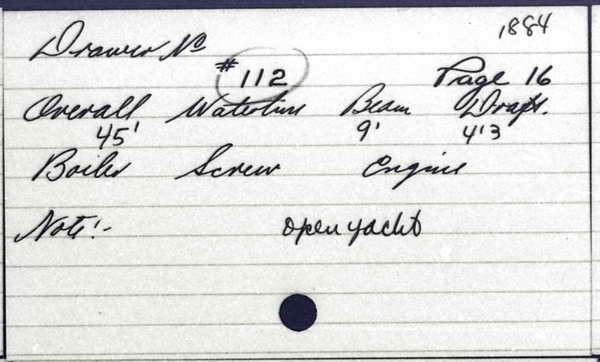 1884
Drawer No
#112 Page 16
Overall Waterline Beam Draft.
45' 9' 4'3
Boiler Screw Engine
Note:- open yacht